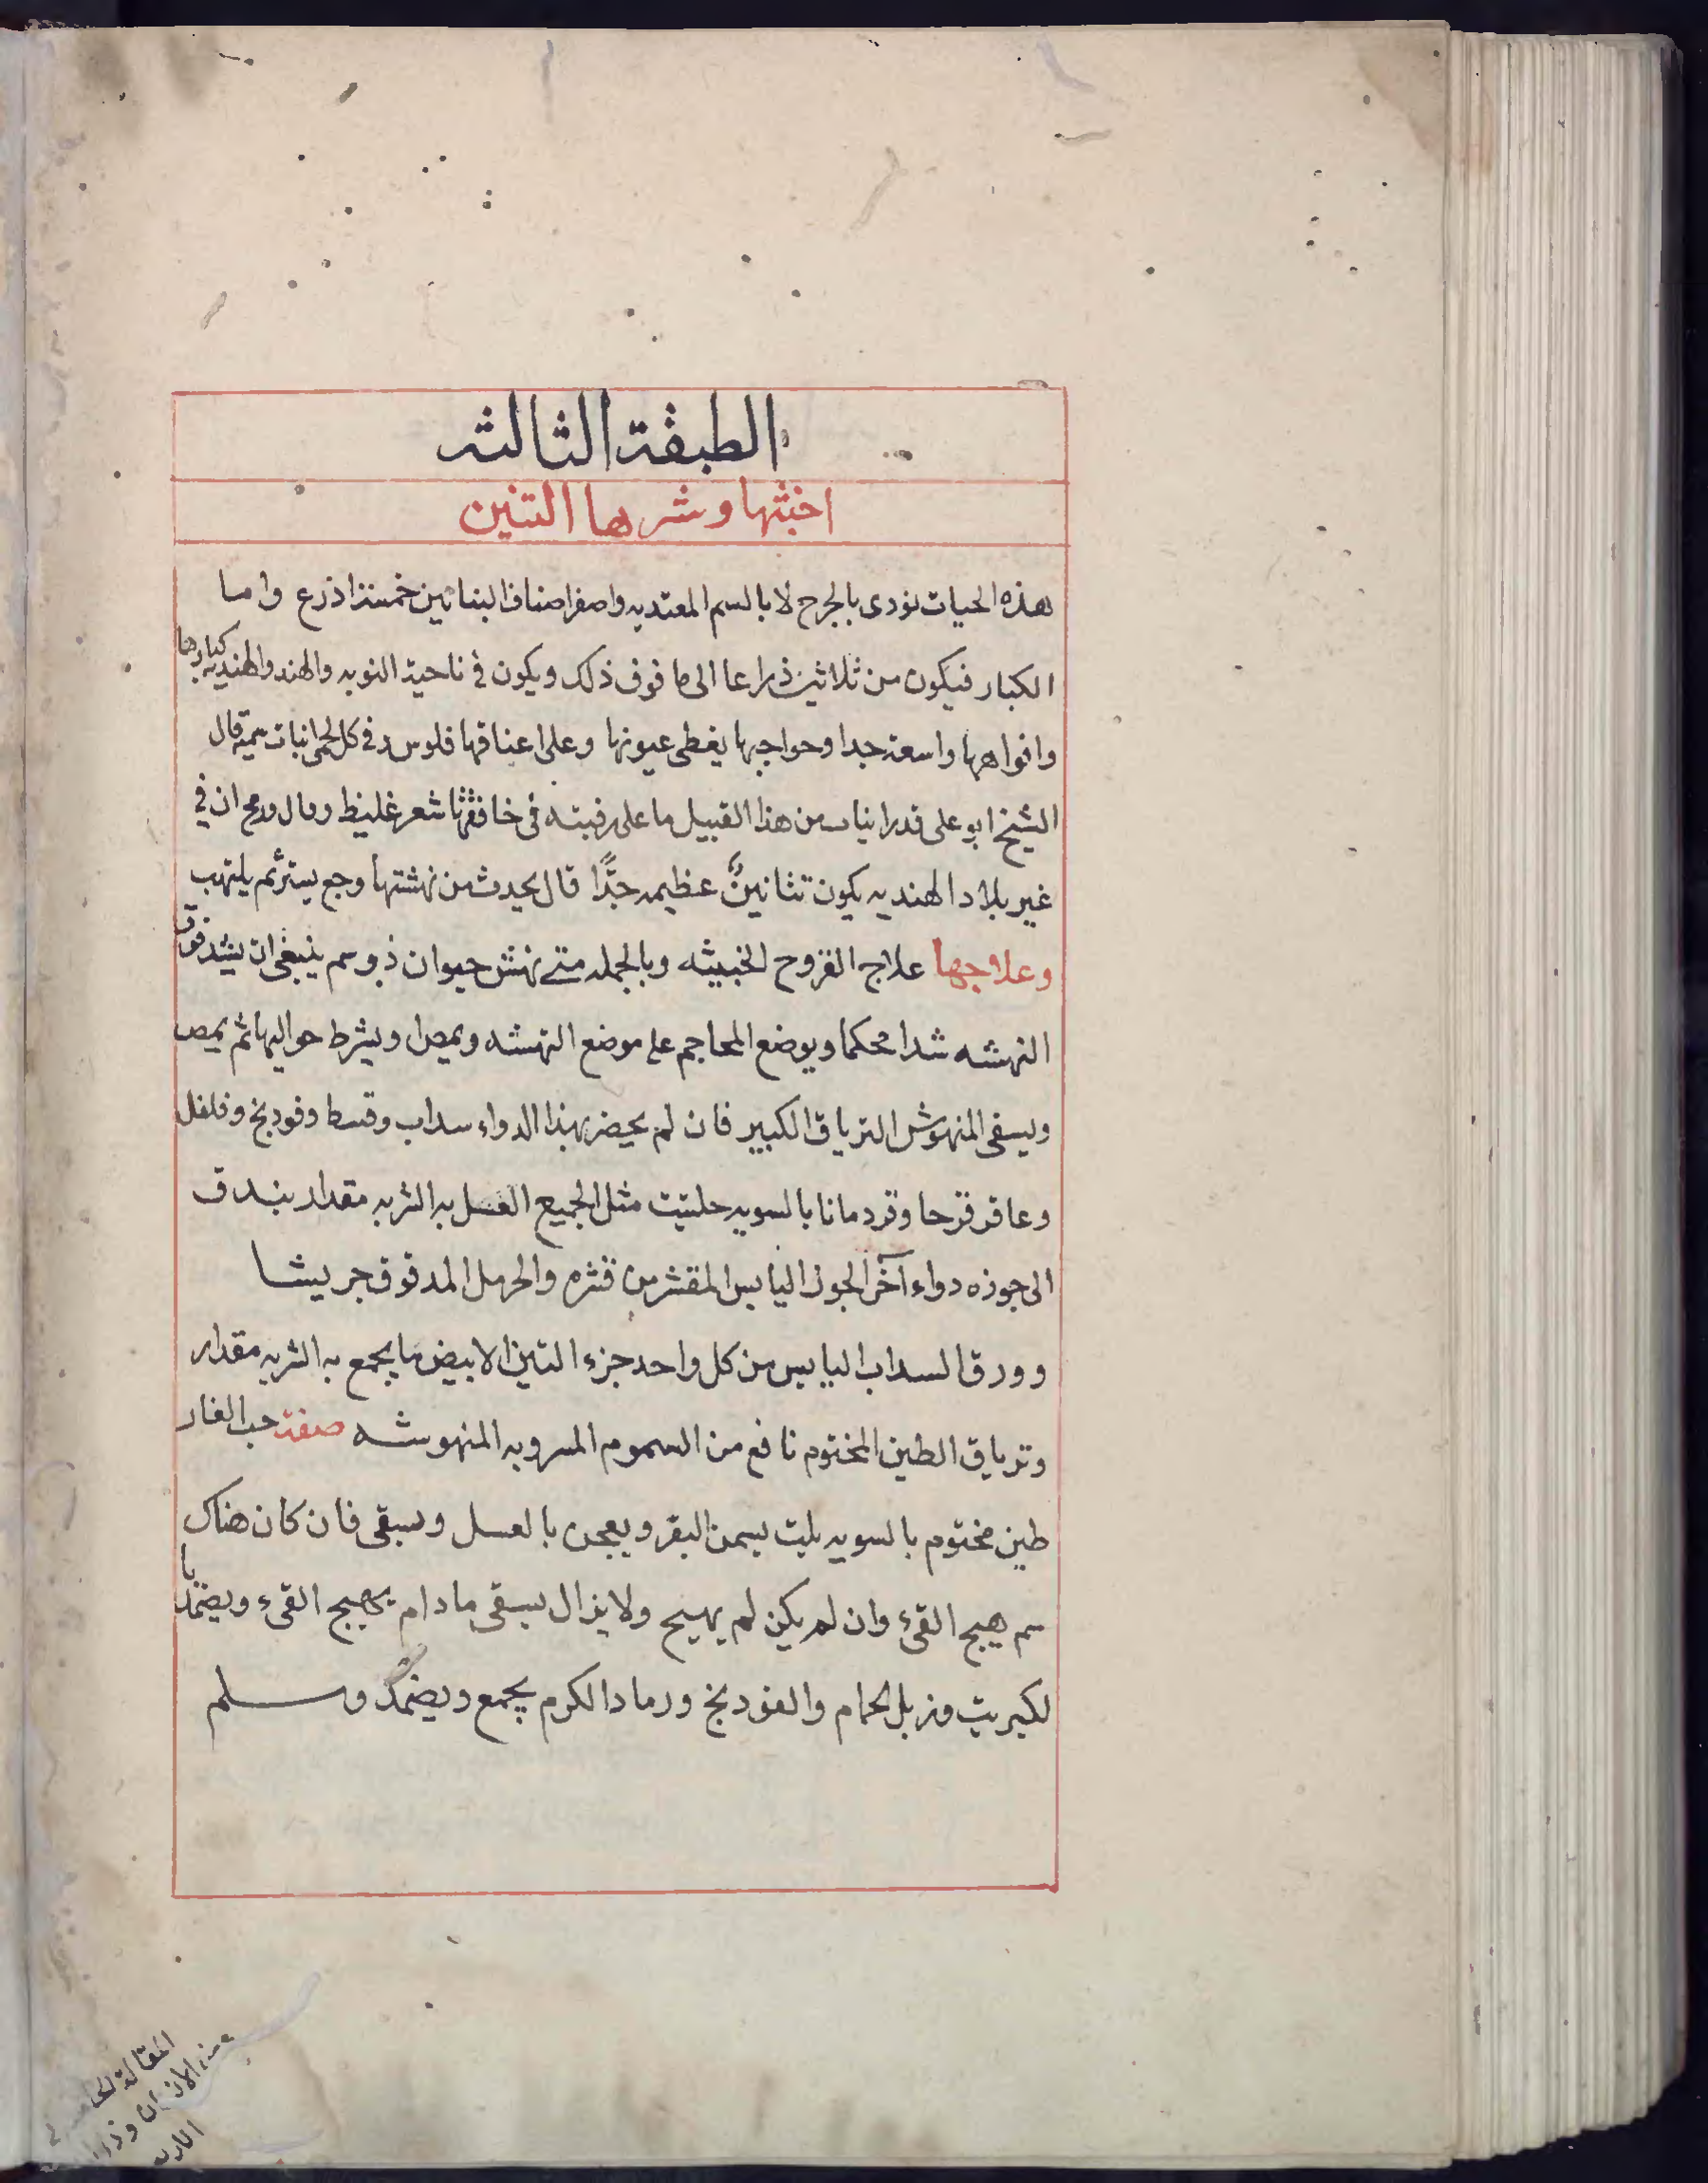 الطبقة الثالثه
اخبثها وشرها التنين
هذه الحيات تودى بالجرح لا بالسم المعتد به واصغر اصناف البنانين خمسة اذرع واما
الكبار فيكون من ثلاثين ذراعا الى ما فوق ذلك ويكون في ناحية النوبه والهند والهنديه كبارها
وافواهها واسعة جدا وحواجبها يغطى عيونها وعلى اعناقها فلوس وفي كل لحى انياب قال
الشيخ ابو على قد راينا من هذا القبيل ما على رقبته في حافتها شعر غليظ وقال ان في
غير بلاد الهنديه يكون تنانين عظيمه جدًّا قال يحدث من نهشتها وجع يستر ثم يلتهب
وعلاجها علاج القروح الخبيثه وبالجمله متى نهش حيوان ذو سم ينبغى ان يشد فوق
النهشه شدا محكما ويوضع المحاجم على موضع النهشه ويمص ويشرط حواليها ثم يمص
ويسقى المنهوش الترياق الكبير فان لم يحضر بهذا الدواء سداب وقسط وفودنج وفلفل
وعاقر قرحا وقردمانا بالسويه حلتيت مثل الجميع العسل به الشربه مقدار بندق
الى جوزه دواء آخر الجوز اليابس المقشر من قشره والحرمل المدقوق جريشا
وورق السداب اليابس من كل واحد جزء التين الابيض ما يجمع به الشربه مقدار
وترياق الطين المختوم نافع من السموم المسروبه المنهوشه صفة حب الغار
طين مختوم بالسويه يلت بسمن البقر ويعجن بالعسل ويسقى فان كان هناك
سم هيج القئ وان لم يكن لم يهيج ولا يزال يسقى ما دام يهيج القىء ويضمد با
لكبريت وزبل الحمام والفودنج ورماد الكرم يجمع ويضمد وسلم
المقالة
من الاذن